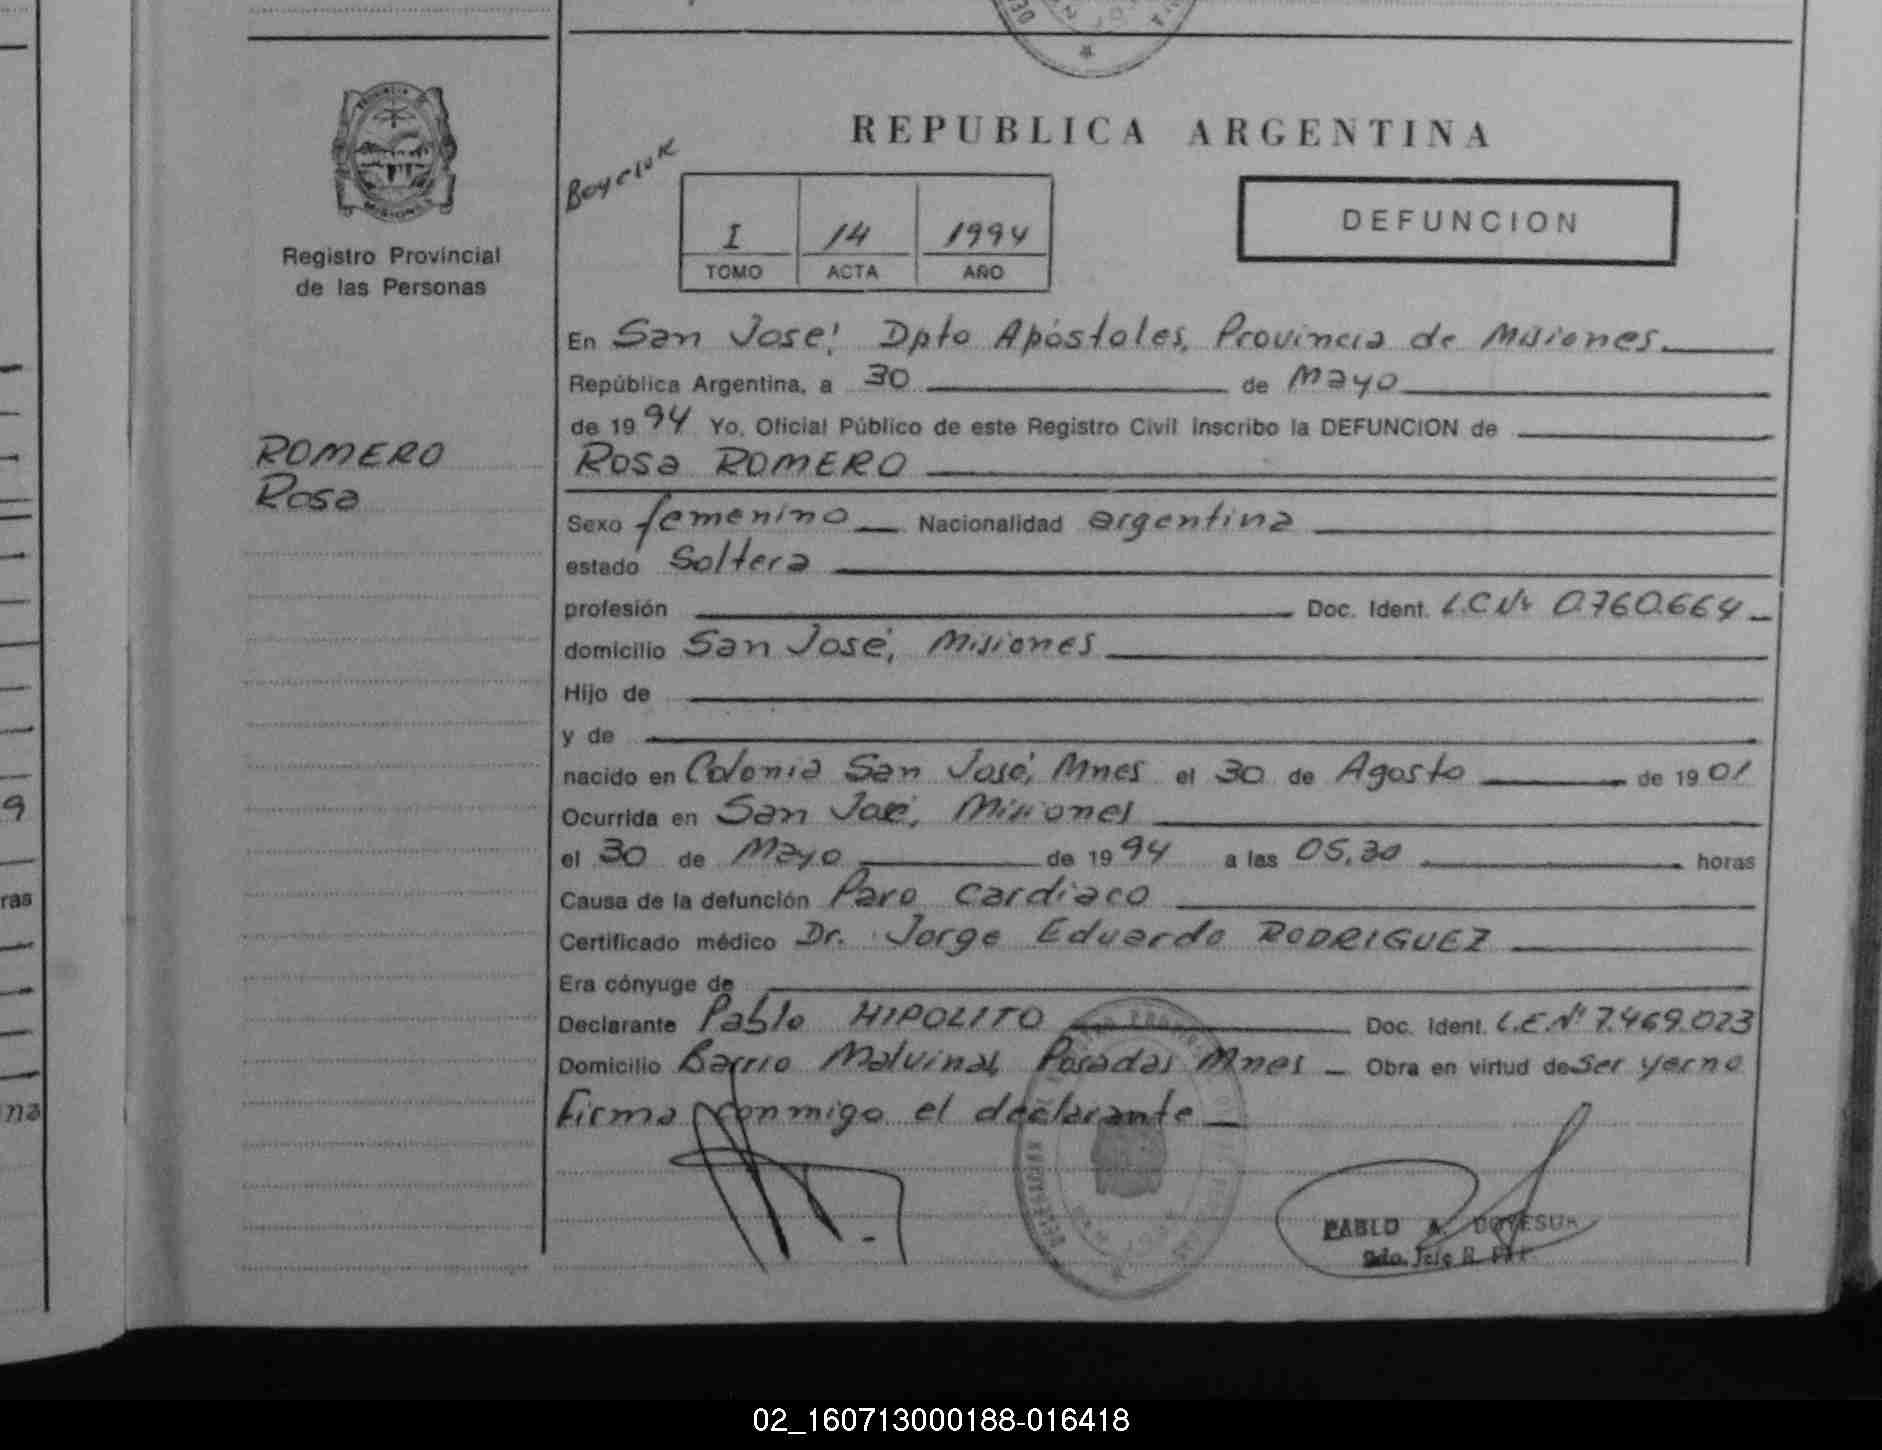 REPUBLICA ARGENTINA
DEFUNCION
I 14 1994
TOMO ACTA AÑO
Registro Provincial
de las Personas
ROMERO
Rosa
En San José, Dpto Apóstoles, Provincia de Misiones.
República Argentina, a 30 de Mayo
de 1994 Yo, Oficial Público de este Registro Civil inscribo la DEFUNCION de
Rosa ROMERO
Sexo femenino Nacionalidad argentina
estado Soltera
profesión Doc. Ident. L.C.Nº 0.760.664
domicilio San José, Misiones
Hijo de
y de
nacido en Colonia San José, Mnes el 30 de Agosto de 1901
Ocurrida en San José, Misiones
el 30 de Mayo de 1994 a las 05,30 horas
Causa de la defunción Paro cardiaco
Certificado médico Dr. Jorge Eduardo RODRIGUEZ
Era cónyuge de
Declarante Pablo HIPOLITO Doc. Ident. L.E.Nº 7.469.023
Domicilio Barrio Malvinas, Posadas Mnes Obra en virtud de Ser yerno
Firma conmigo el declarante
PABLO A.
02_160713000188-016418